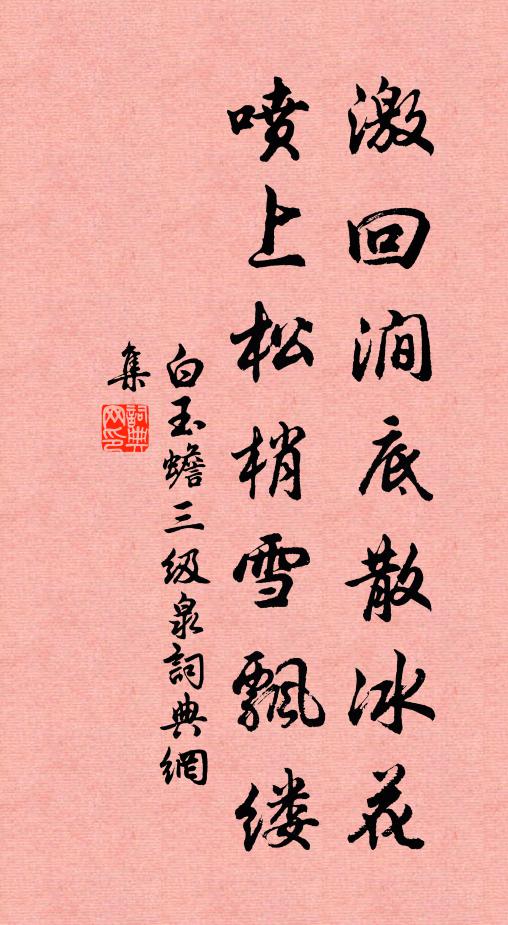 激回澗底散冰花
喷上松梢雪飄缕
白玉蟾三级泉詞典網
集
詞典
网印